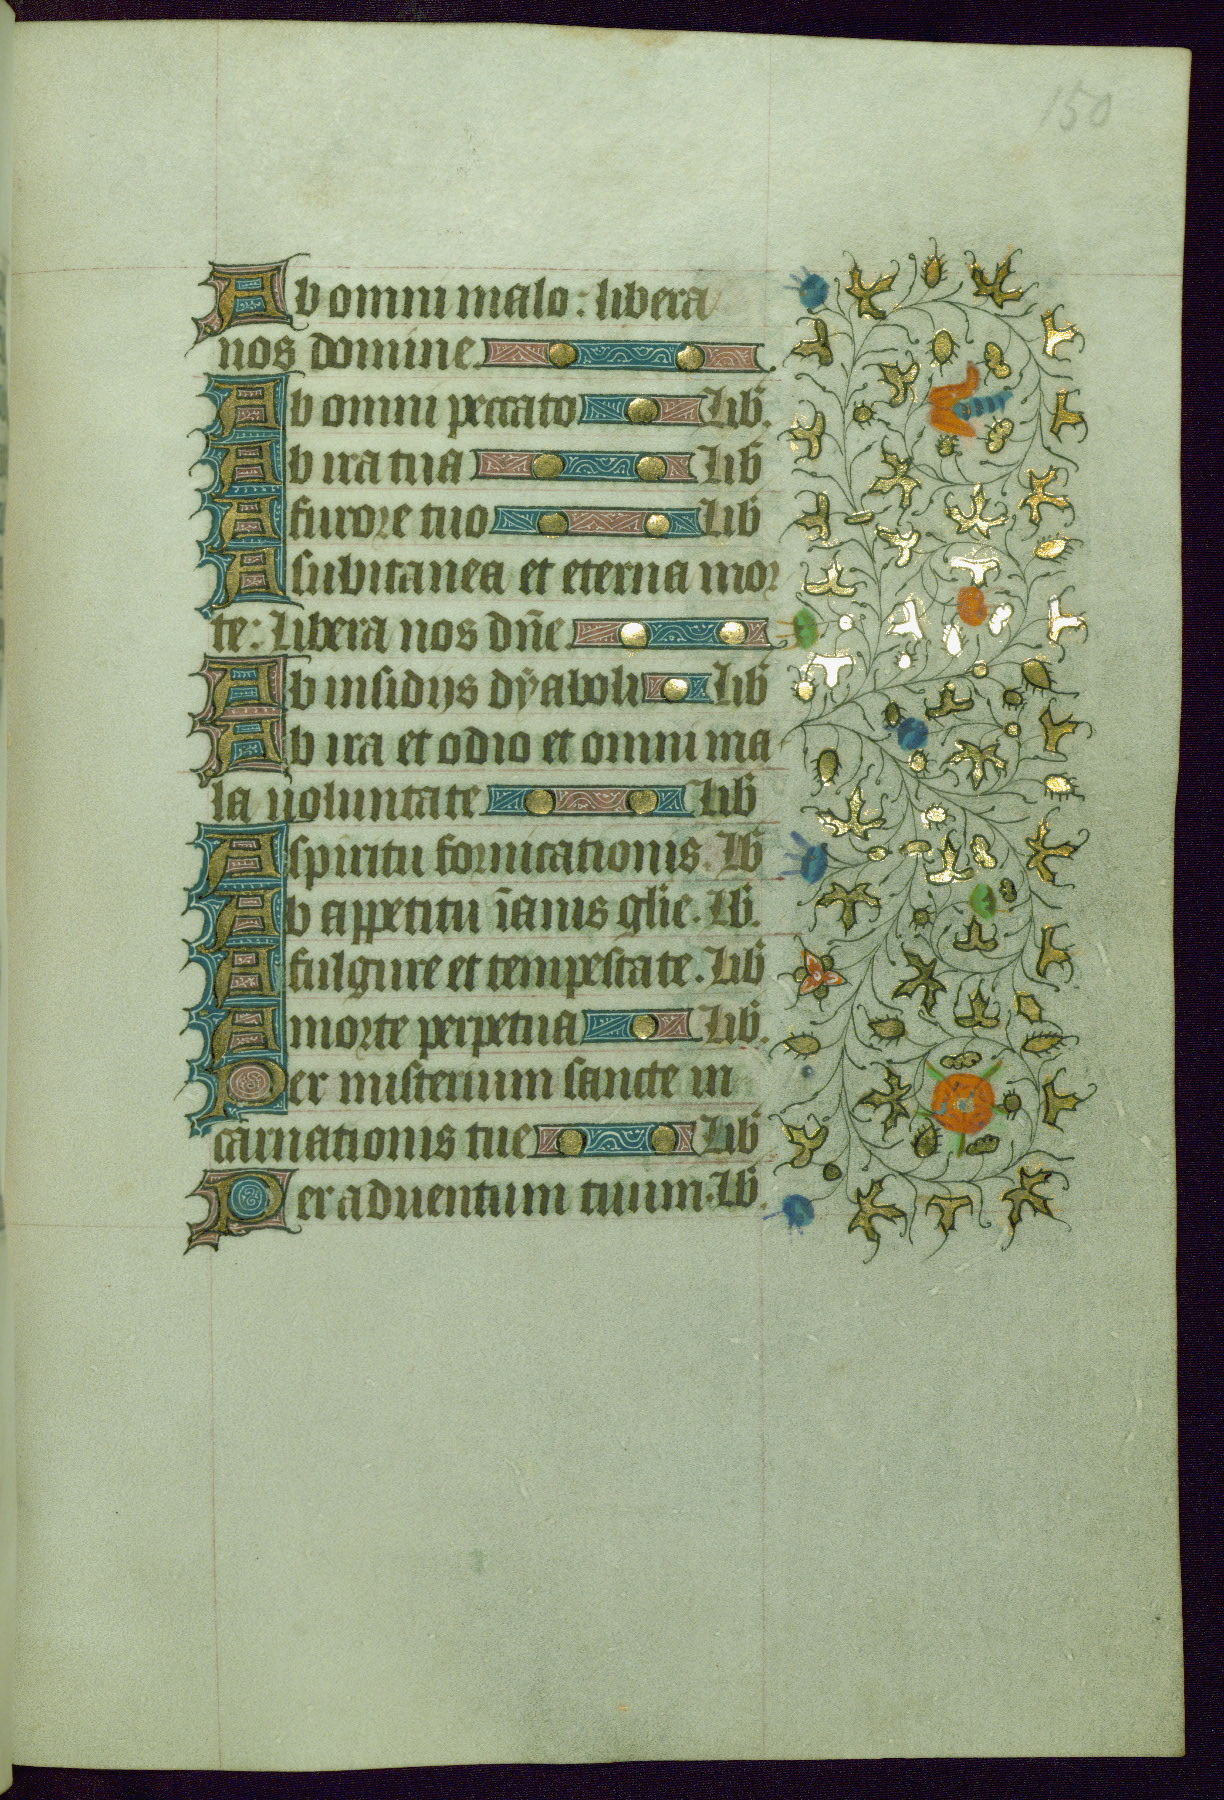 150
Ab omni malo: libera
nos domine.
Ab omni peccato Lib̄.
Ab ira tua Lib̄
A furore tuo Lib̄
A subitanea et eterna mor
te: Libera nos dn̄e
Ab insidijs dẏaboli Lib̄
Ab ira et odio et omni ma
la uoluntate Lib̄
A spiritu fornicationis. Lb̄
Ab appetitu īanis gl̄ie. Lb̄.
A fulgure et tempestate. Lib̄
A morte perpetua Lib̄.
Per misterium sancte in
carnationis tue Lib̄
Per aduentum tuum. Lb̄.